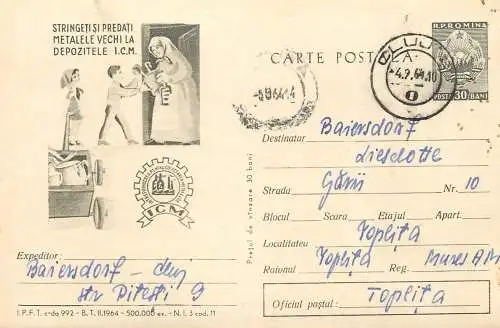 STRINGEȚI ȘI PREDAȚI
METALELE VECHI LA
DEPOZITELE I.C.M.
CARTE POSTALĂ
R.P. ROMINA
POSTA 30 BANI
CLUJ
4.2.64.10
ICM
Prețul de vînzare 30 bani
Destinatar Baiersdorf
Lieselotte
Strada Gării Nr. 10
Blocul Scara Etajul Apart.
Localitatea Toplița
Raionul Toplița Reg. Mureș A.M.
Oficiul poștal: Toplița
Expeditor:
Baiersdorf - Cluj
str Pitești 9
I.P.F.T. c-da 992 - B.T. II.1964 - 500.000 ex. - N.I. 3 cod. 11